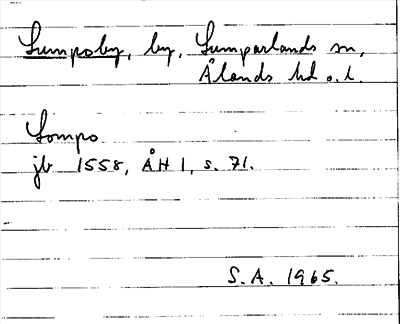 Lumpoby, by, Lumparlands sn,
Ålands hd o. l.
Lompo
jb 1558, ÅH 1, s. 71.
S. A. 1965.